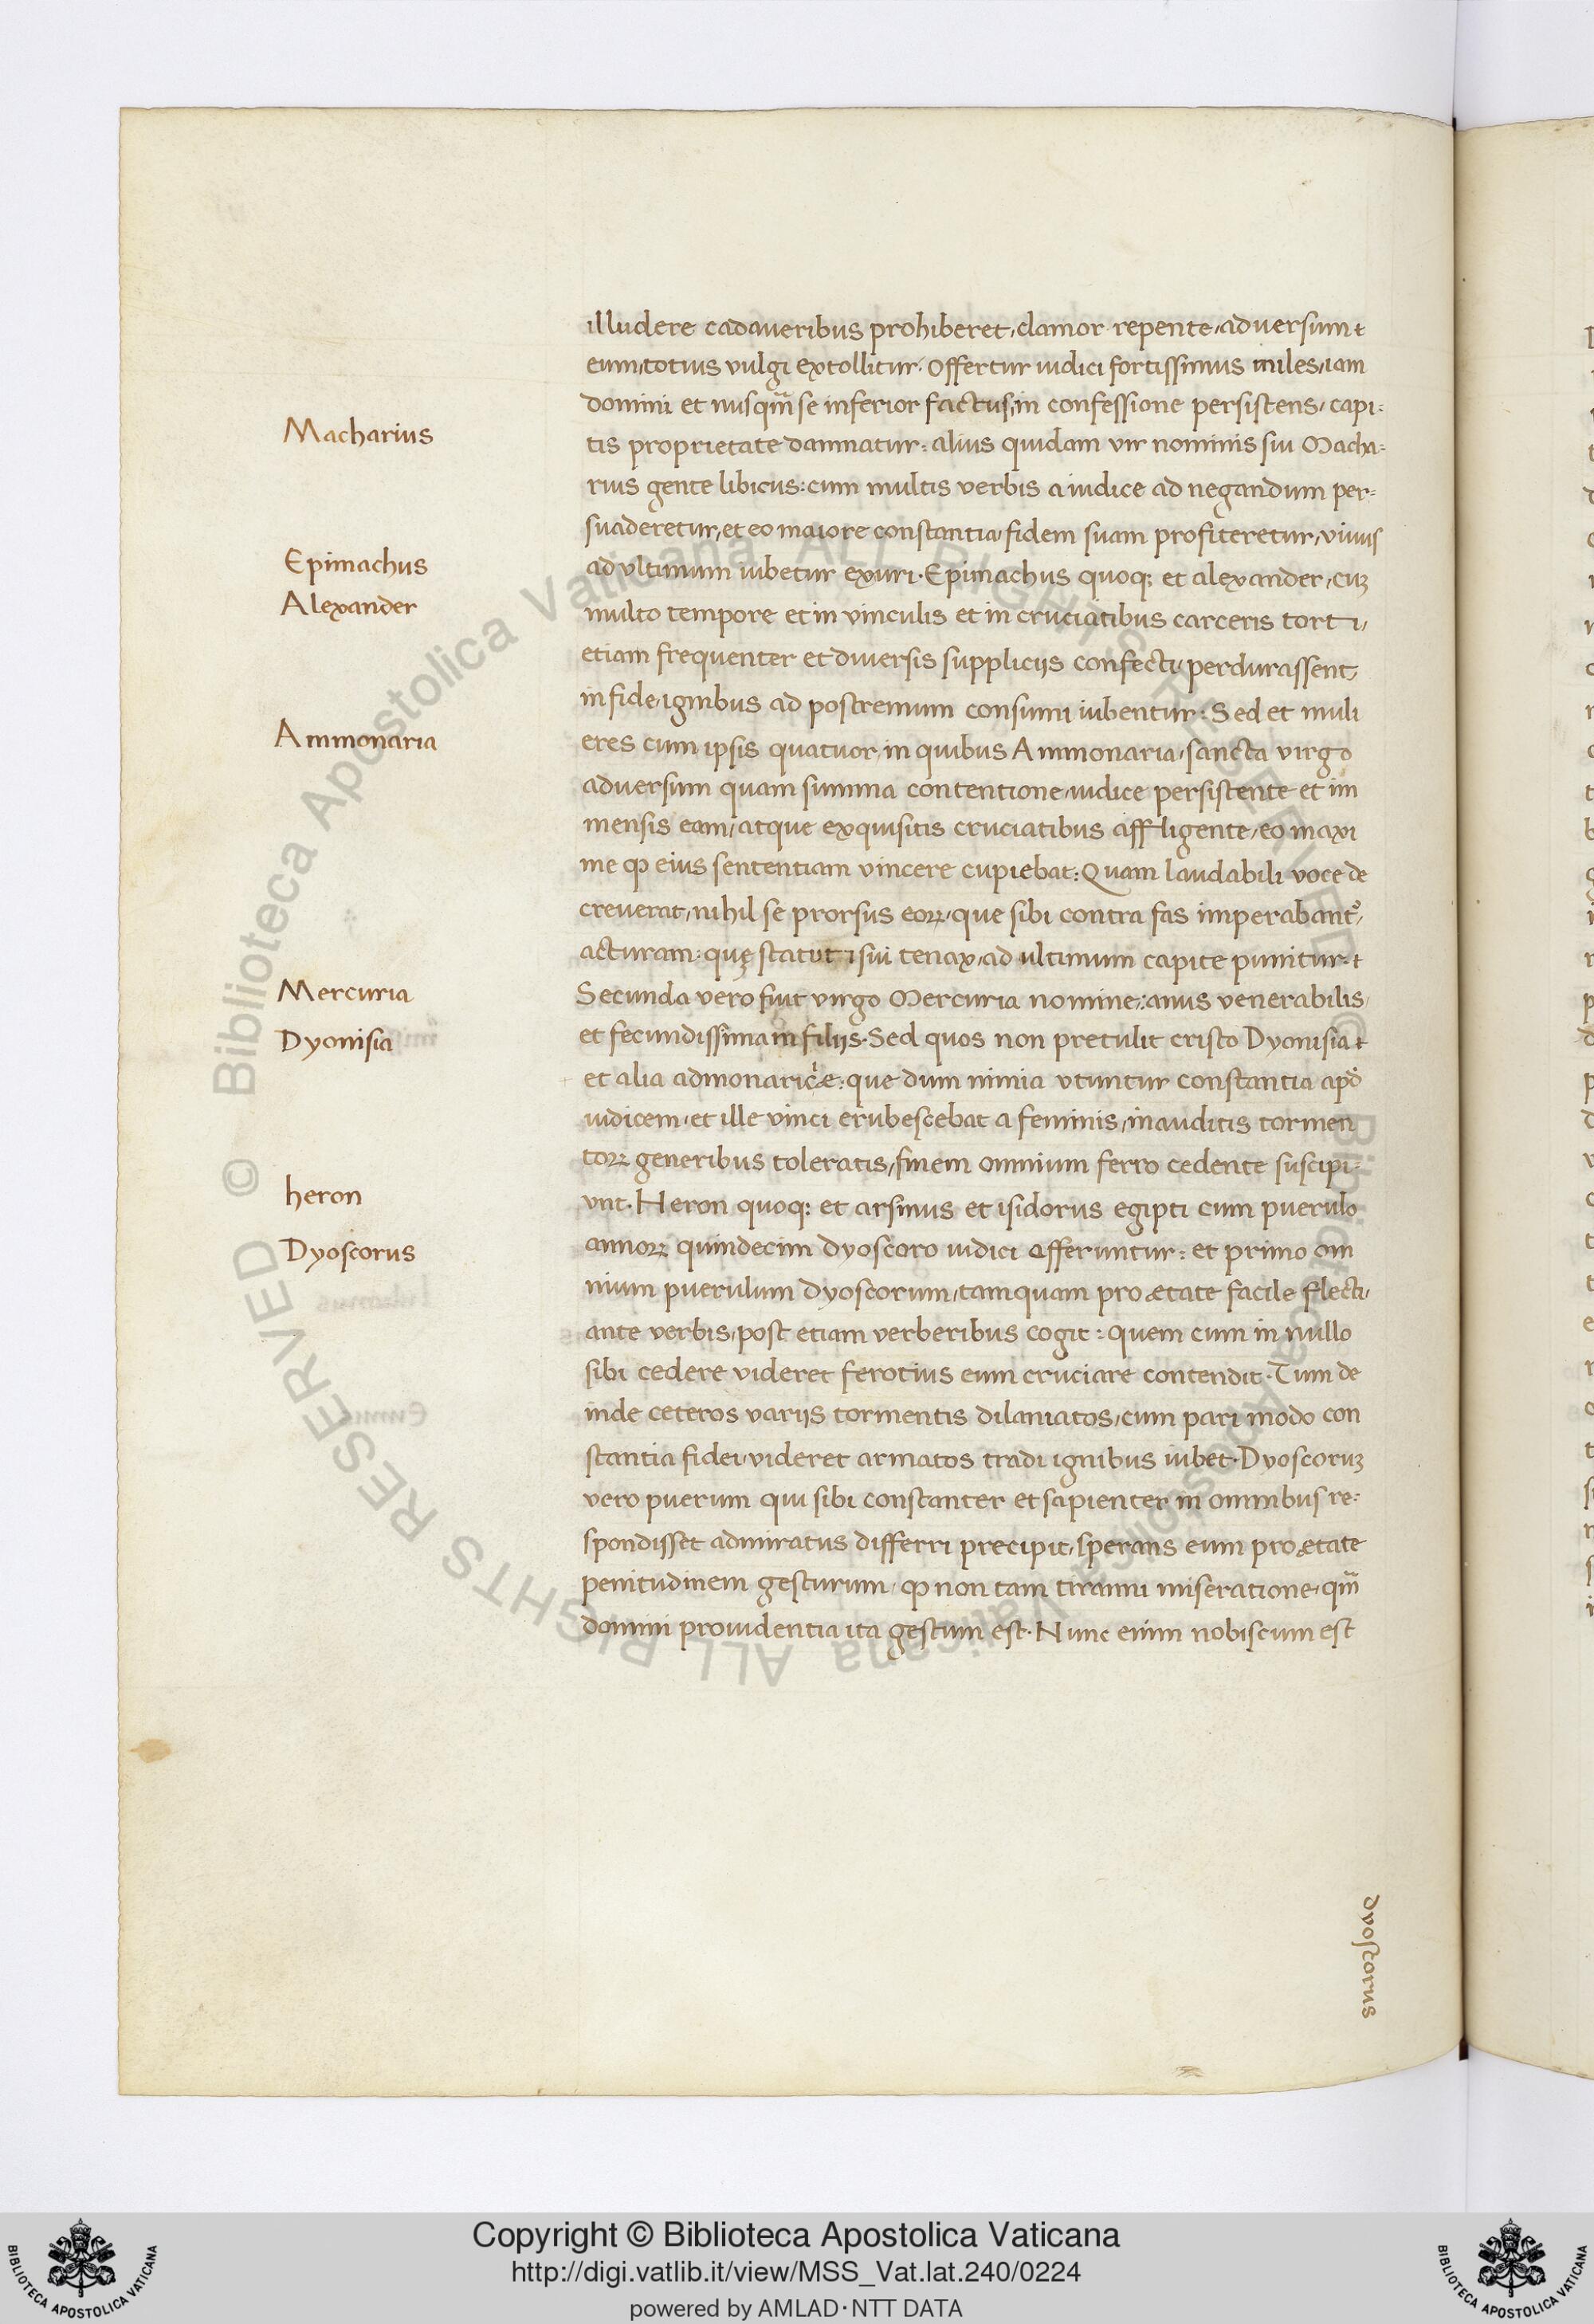 illudere cadaveribus prohiberet, clamor repente, adversum
eum, totius vulgi extollitur. Offertur iudici fortissimus miles, iam
domini et nusqm̄ se inferior factus, in confessione persistens, capi-
tis proprietate damnatur: alius quidam vir nominis sui Macha-
rius gente libicus: cum multis verbis a iudice ad negandum per-
suaderetur, et eo maiore constantia fidem suam profiteretur, vivus
ad ultimum iubetur exuri. Epimachus quoq; et alexander, cuʒ
multo tempore et in vinculis et in cruciatibus carceris torti,
etiam frequenter et diversis suppliciis confecti, perdurassent,
in fide, ignibus ad postremum consumi iubentur: Sed et muli
eres cum ipsis quatuor, in quibus Ammonaria, sancta virgo
adversum quam summa contentione, iudice persistente et im
mensis eam, atque exquisitis cruciatibus affligente, eo maxi
me ꝙ eius sententiam vincere cupiebat: Quam laudabili voce de
creverat, nihil se prorsus eoꝝ, que sibi contra fas imperabant᷒,
acturam: quę statuti sui tenax, ad ultimum capite punitur.
Secunda vero fuit virgo Mercuria nomine: anus venerabilis,
et fecundissima in filiis. Sed quos non pretulit cristo Dyonisia
et alia admonaricæ: que dum nimia utuntur constantia apd̉
iudicem, et ille vinci erubescebat a feminis, inauditis tormen
toꝝ generibus toleratis, finem omnium ferro cedente suscipi-
unt. Heron quoq: et arsinus et isidorus egipti cum puerulo
annoꝝ quindecim dyoscoro iudici offeruntur: et primo om
nium puerulum dyoscorum, tamquam pro ætate facile flecti,
ante verbis, post etiam verberibus cogit: quem cum in nullo
sibi cedere videret ferotius eum cruciare contendit. Tum de
inde ceteros variis tormentis dilaniatos, cum pari modo con
stantia fidei, videret armatos tradi ignibus iubet. Dyoscoruʒ
vero puerum qui sibi constanter et sapienter in omnibus re-
spondisset admiratus differri precipit, sperans eum pro ætate
penitudinem gesturum, ꝙ non tam tiranni miseratione, qm̄
domini providentia ita gestum est. Nunc enim nobiscum est
Macharius
Epimachus
Alexander
Ammonaria
Mercuria
Dyonisia
heron
Dyoscorus
dyoscorus
© Biblioteca Apostolica Vaticana ALL RIGHTS RESERVED
© Biblioteca Apostolica Vaticana ALL RIGHTS RESERVED
Copyright © Biblioteca Apostolica Vaticana
http://digi.vatlib.it/view/MSS_Vat.lat.240/0224
powered by AMLAD·NTT DATA
BIBLIOTECA APOSTOLICA VATICANA
BIBLIOTECA APOSTOLICA VATICANA